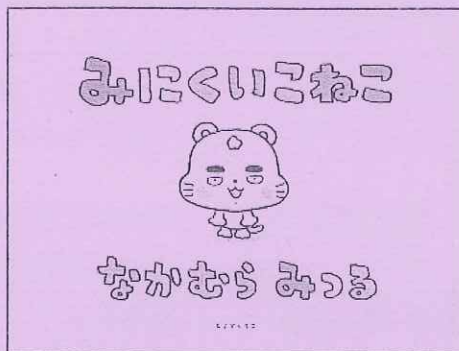 みにくいこねこ
なかむら みつる